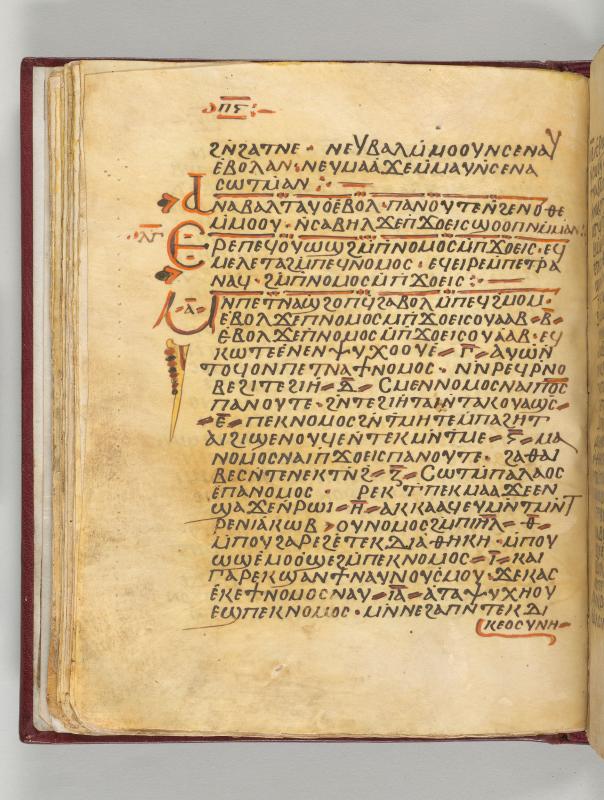 ⲡⲋ
ϩⲛϩⲁⲧⲛⲉ · ⲛⲉⲩⲃⲁⲗⲙⲙⲟⲟⲩⲛⲥⲉⲛⲁⲩ
ⲉⲃⲟⲗⲁⲛ · ⲛⲉⲩⲙⲁⲁϫⲉⲙⲙⲁⲩⲛⲥⲉⲛⲁ
ⲥⲱⲧⲙⲁⲛ
ⲁⲛⲁⲃⲁⲗⲧⲁⲩⲟⲉⲃⲟⲗ · ⲡⲁⲛⲟⲩⲧⲉⲛϩⲉⲛⲟϭⲉ
ⲙⲙⲟⲟⲩ · ⲛⲥⲁⲃⲏⲗϫⲉⲡϫⲟⲉⲓⲥϣⲟⲟⲡⲛⲙⲙⲁⲛ
ⲗⲅ
ⲉⲣⲉⲡⲉϥⲟⲩⲱϣϩⲙⲡⲛⲟⲙⲟⲥⲙⲡϫⲟⲉⲓⲥ · ⲉϥ
ⲙⲉⲗⲉⲧⲁϩⲙⲡⲉϥⲛⲟⲙⲟⲥ · ⲉϥⲉⲓⲣⲉⲙⲡⲉⲧⲣⲁ
ⲛⲁϥ · ϩⲙⲡⲛⲟⲙⲟⲥⲙⲡϫⲟⲉⲓⲥ
ⲁ ⲙⲛⲡⲉⲧⲛⲁϣϩⲟⲡϥϩⲁⲃⲟⲗⲙⲡⲉϥϩⲙⲟⲙ ·
ⲉⲃⲟⲗϫⲉⲡⲛⲟⲙⲟⲥⲙⲡϫⲟⲉⲓⲥⲟⲩⲁⲁⲃ ⲃ
ⲉⲃⲟⲗϫⲉⲡⲛⲟⲙⲟⲥⲙⲡϫⲟⲉⲓⲥⲟⲩⲁⲁⲃ · ⲉϥ
ⲕⲱⲧⲉⲉⲛⲉⲛⲯⲩⲭⲟⲟⲩⲉ ⲅ ⲁⲩⲱⲛ
ⲧⲟϥⲟⲛⲡⲉⲧⲛⲁϯⲛⲟⲙⲟⲥ · ⲛⲛⲣⲉϥⲣⲛⲟ
ⲃⲉϩⲓⲧⲉϩⲓⲏ ⲇ ⲥⲙⲉⲛⲛⲟⲙⲟⲥⲛⲁⲓⲡⲟⲥ
ⲡⲁⲛⲟⲩⲧⲉ · ϩⲛⲧⲉϩⲓⲏⲧⲁⲓⲛⲧⲁⲕⲟⲩⲁϣⲥ
ⲉ ⲡⲉⲕⲛⲟⲙⲟⲥϩⲛⲧⲙⲏⲧⲉⲙⲡⲁϩⲏⲧ
ⲁⲓϩⲓϣⲉⲛⲟⲩϥⲉⲛⲧⲉⲕⲙⲛⲧⲙⲉ ⲋ ⲙⲁ
ⲛⲟⲙⲟⲥⲛⲁⲓⲡϫⲟⲉⲓⲥⲡⲁⲛⲟⲩⲧⲉ · ϩⲁⲑⲁⲓ
ⲃⲉⲥⲛⲧⲉⲛⲉⲕⲧⲛϩ ⲍ ⲥⲱⲧⲙⲡⲁⲗⲁⲟⲥ
ⲉⲡⲁⲛⲟⲙⲟⲥ · ⲣⲉⲕⲧⲡⲉⲕⲙⲁⲁϫⲉⲉⲛ
ϣⲁϫⲉⲛⲣⲱⲓ ⲏ ⲁⲕⲕⲁⲁϥⲉⲩⲙⲛⲧⲙⲛⲧ
ⲣⲉⲛⲓⲁⲕⲱⲃ ⲟⲩⲛⲟⲙⲟⲥϩⲙⲡⲓⲏⲗ ⲑ
ⲙⲡⲟⲩϩⲁⲣⲉϩⲉⲧⲉⲕⲇⲓⲁⲑⲏⲕⲏ · ⲙⲡⲟⲩ
ⲱϣⲉⲙⲟⲟϣⲉϩⲙⲡⲉⲕⲛⲟⲙⲟⲥ ⲓ ⲕⲁⲓ
ⲡⲁⲣⲉⲕϣⲁⲛϯⲛⲁⲩⲛⲟⲩⲥⲙⲟⲩ · ϫⲉⲕⲁⲥ
ⲉⲕⲉϯⲛⲟⲙⲟⲥⲛⲁⲩ ⲓⲁ ⲁⲧⲁⲯⲩⲭⲏⲟⲩ
ⲉϣⲡⲉⲕⲛⲟⲙⲟⲥ · ⲙⲛⲛⲉϩⲁⲡⲛⲧⲉⲕⲇⲓ
ⲕⲉⲟⲥⲩⲛⲏ